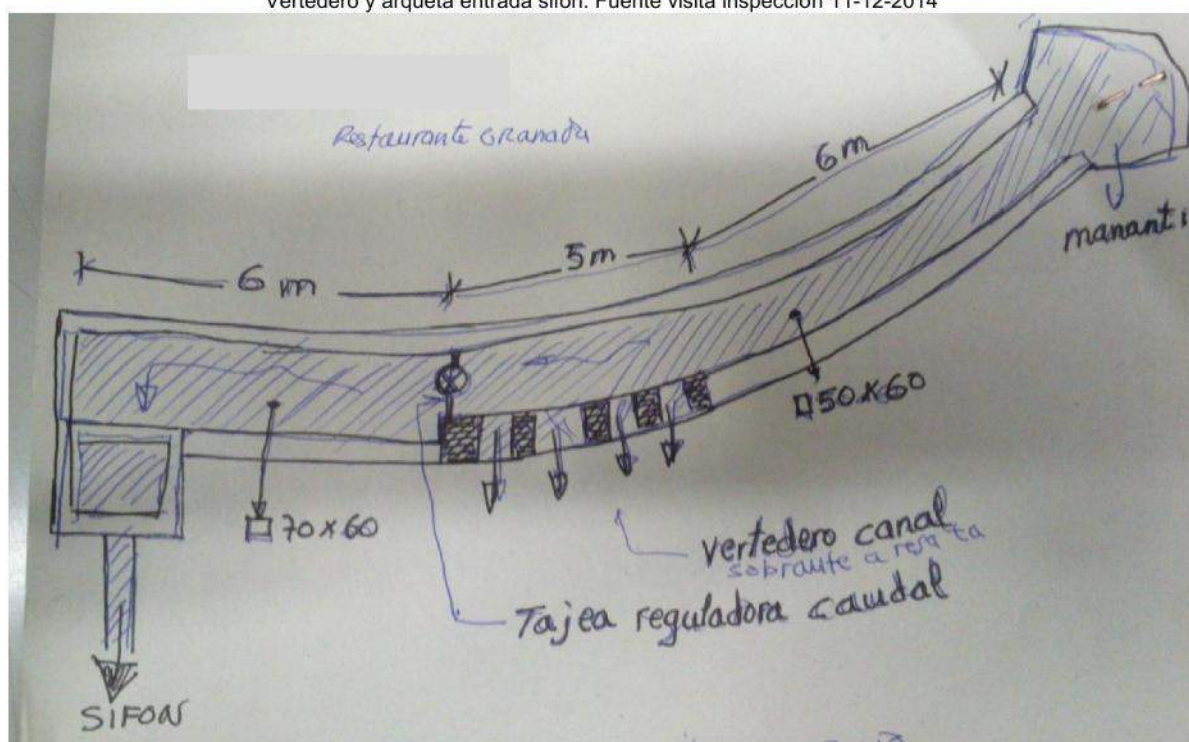 Vertedero y arqueta entrada sifón. Fuente visita inspección 11-12-2014
Restaurante Granada
6m
mananti
5m
6 m
50x60
70x60
vertedero canal
sobrante a
Tajea reguladora caudal
SIFON